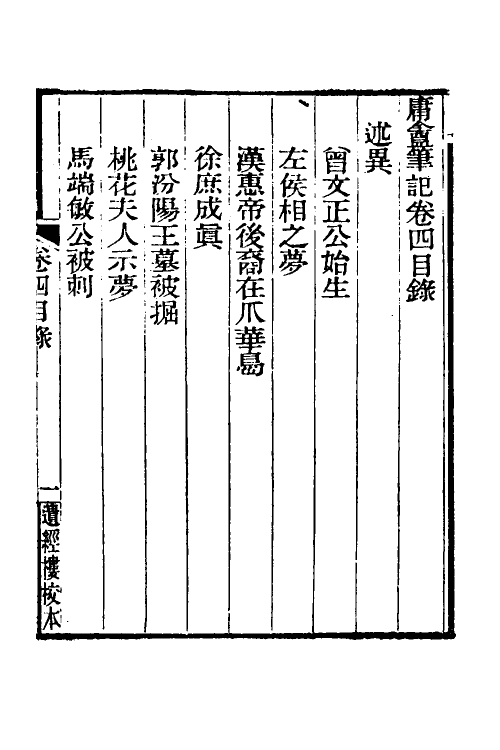 庸盦筆記卷四目錄
述異
曾文正公始生
左侯相之夢
漢惠帝後裔在爪華島
徐庶成眞
郭汾陽王墓被掘
桃花夫人示夢
馬端敏公被刺
卷四目錄
一
遺經樓校本